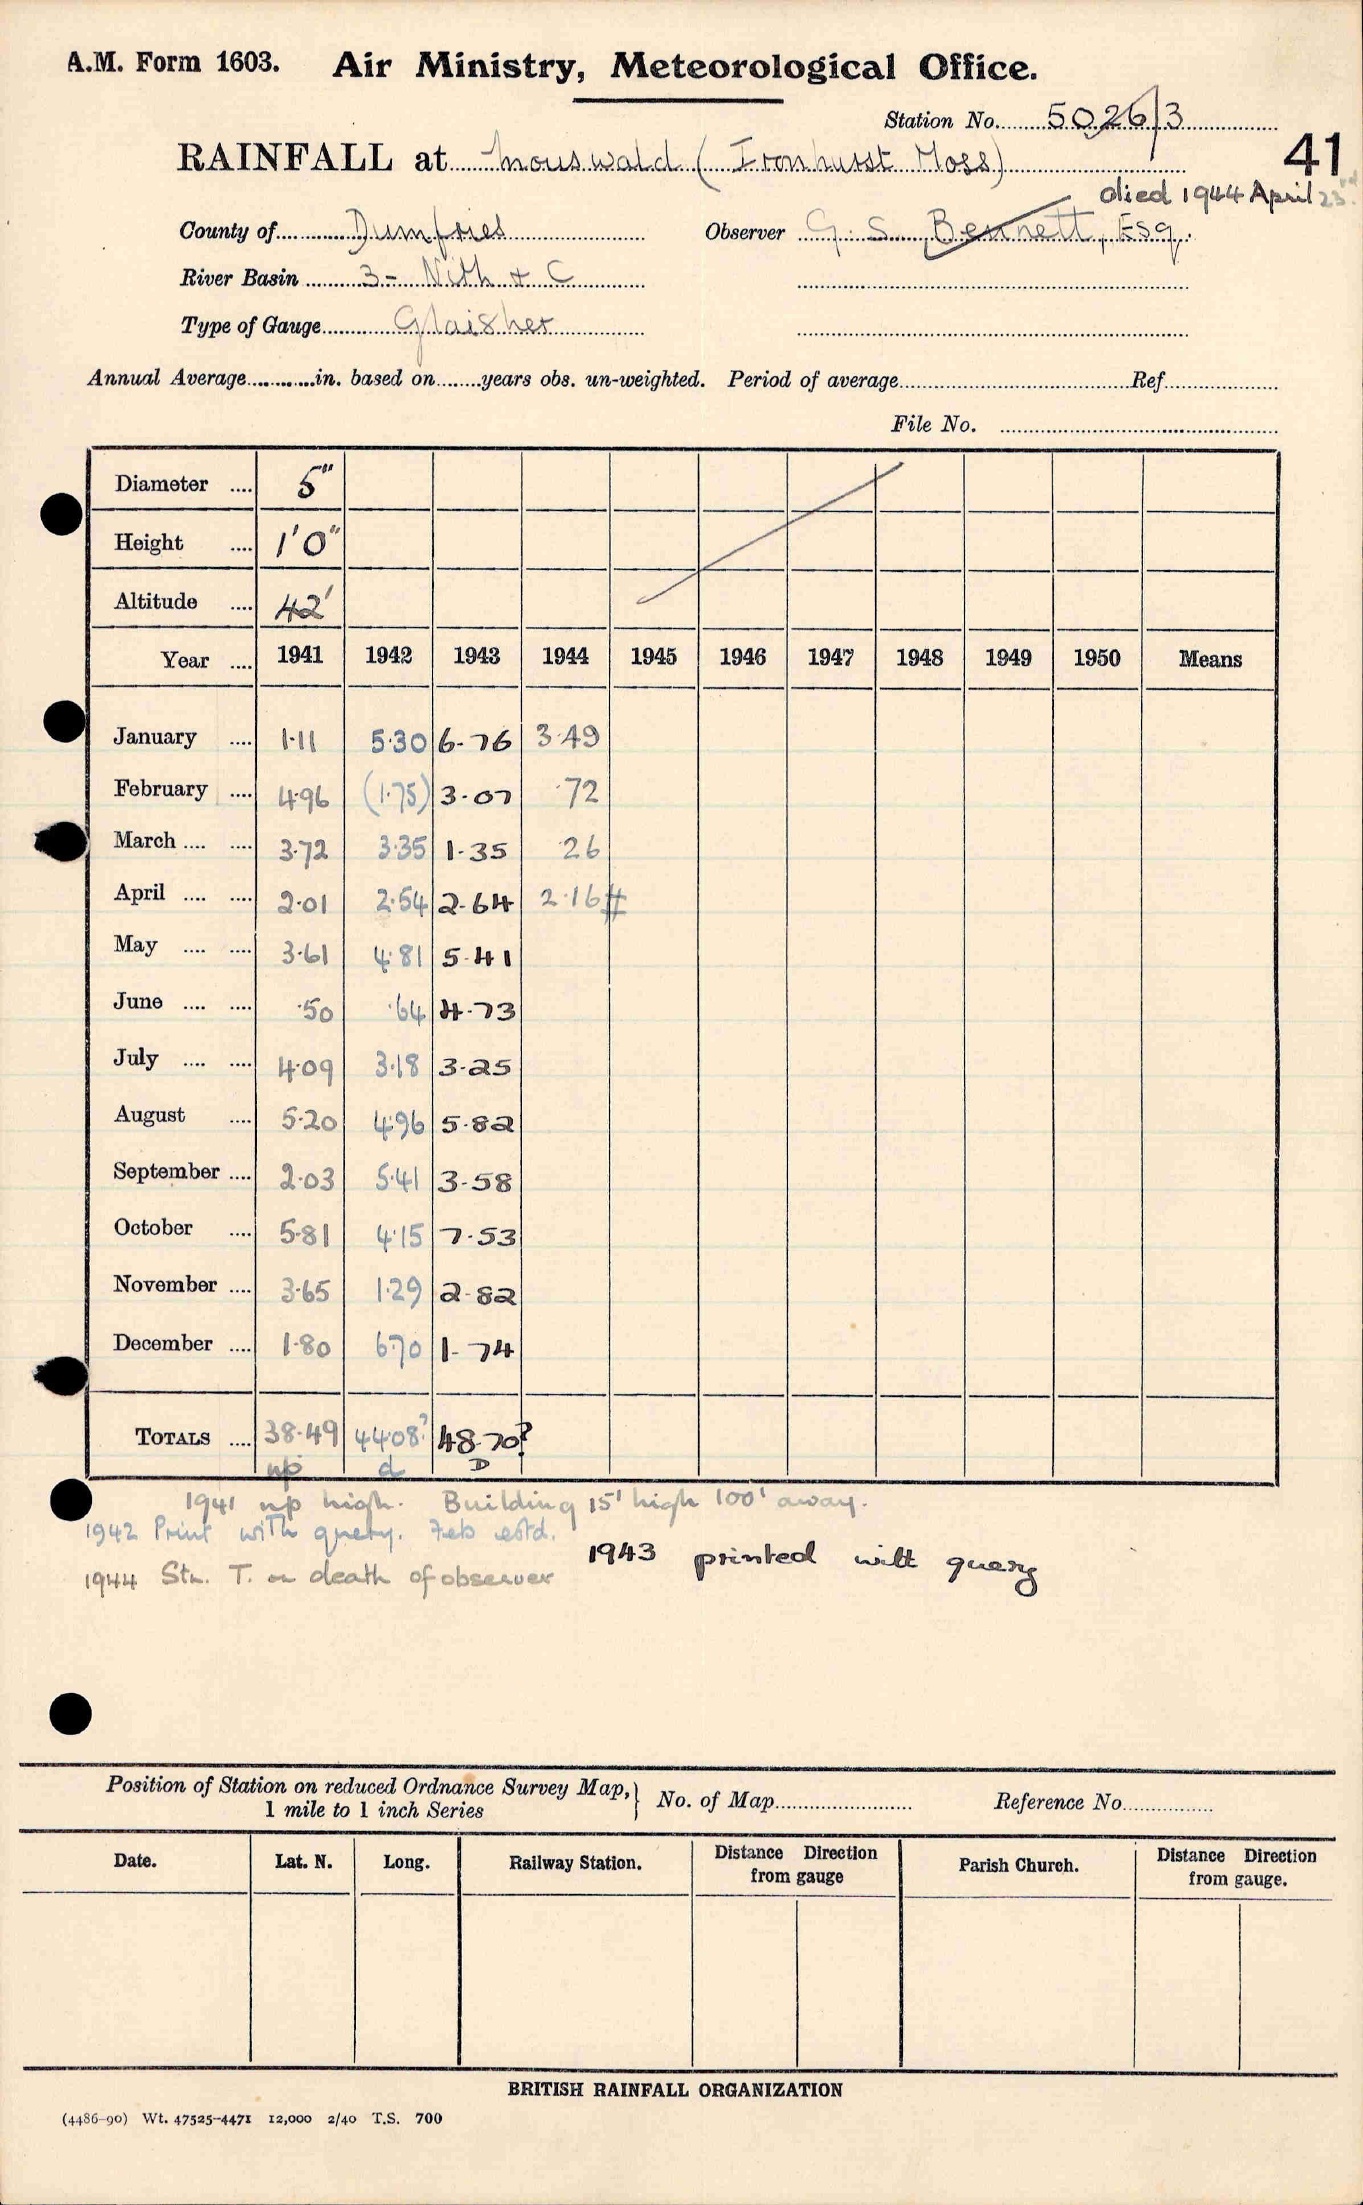 A.M. Form 1603. Air Ministry, Meteorological Office.
Station No. 5026/3
41
RAINFALL at Mouswald (Ironhurst Moss)
died 1944 April 23rd
County of Dumfries Observer G. S. Bennett, Esq.
River Basin 3 - Nith + C
Type of Gauge Glaisher
Annual Average............in. based on........years obs. un-weighted. Period of average............ Ref............
File No. ............
Diameter .... 5"
Height .... 1'0"
Altitude .... 42'
Year .... 1941 1942 1943 1944 1945 1946 1947 1948 1949 1950 Means
January .... 1·11 5·30 6·76 3·49
February .... 4·96 (1·75) 3·07 ·72
March .... .... 3·72 3·35 1·35 ·26
April .... .... 2·01 2·54 2·64 2·16 #
May .... .... 3·61 4·81 5·41
June .... .... ·50 ·64 4·73
July .... .... 4·09 3·18 3·25
August .... 5·20 4·96 5·82
September .... 2·03 5·41 3·58
October .... 5·81 4·15 7·53
November .... 3·65 1·29 2·82
December .... 1·80 6·70 1·74
TOTALS .... 38·49 44·08? 48·70?
np d D
1941 np high. Building 15' high 100' away.
1942 Print with query. Feb estd.
1943 printed with query
1944 Stn. T. on death of observer
Position of Station on reduced Ordnance Survey Map, } No. of Map............ Reference No............
1 mile to 1 inch Series
Date. Lat. N. Long. Railway Station. Distance Direction from gauge Parish Church. Distance Direction from gauge.
BRITISH RAINFALL ORGANIZATION
(4486-90) Wt. 47525-4471 12,000 2/40 T.S. 700